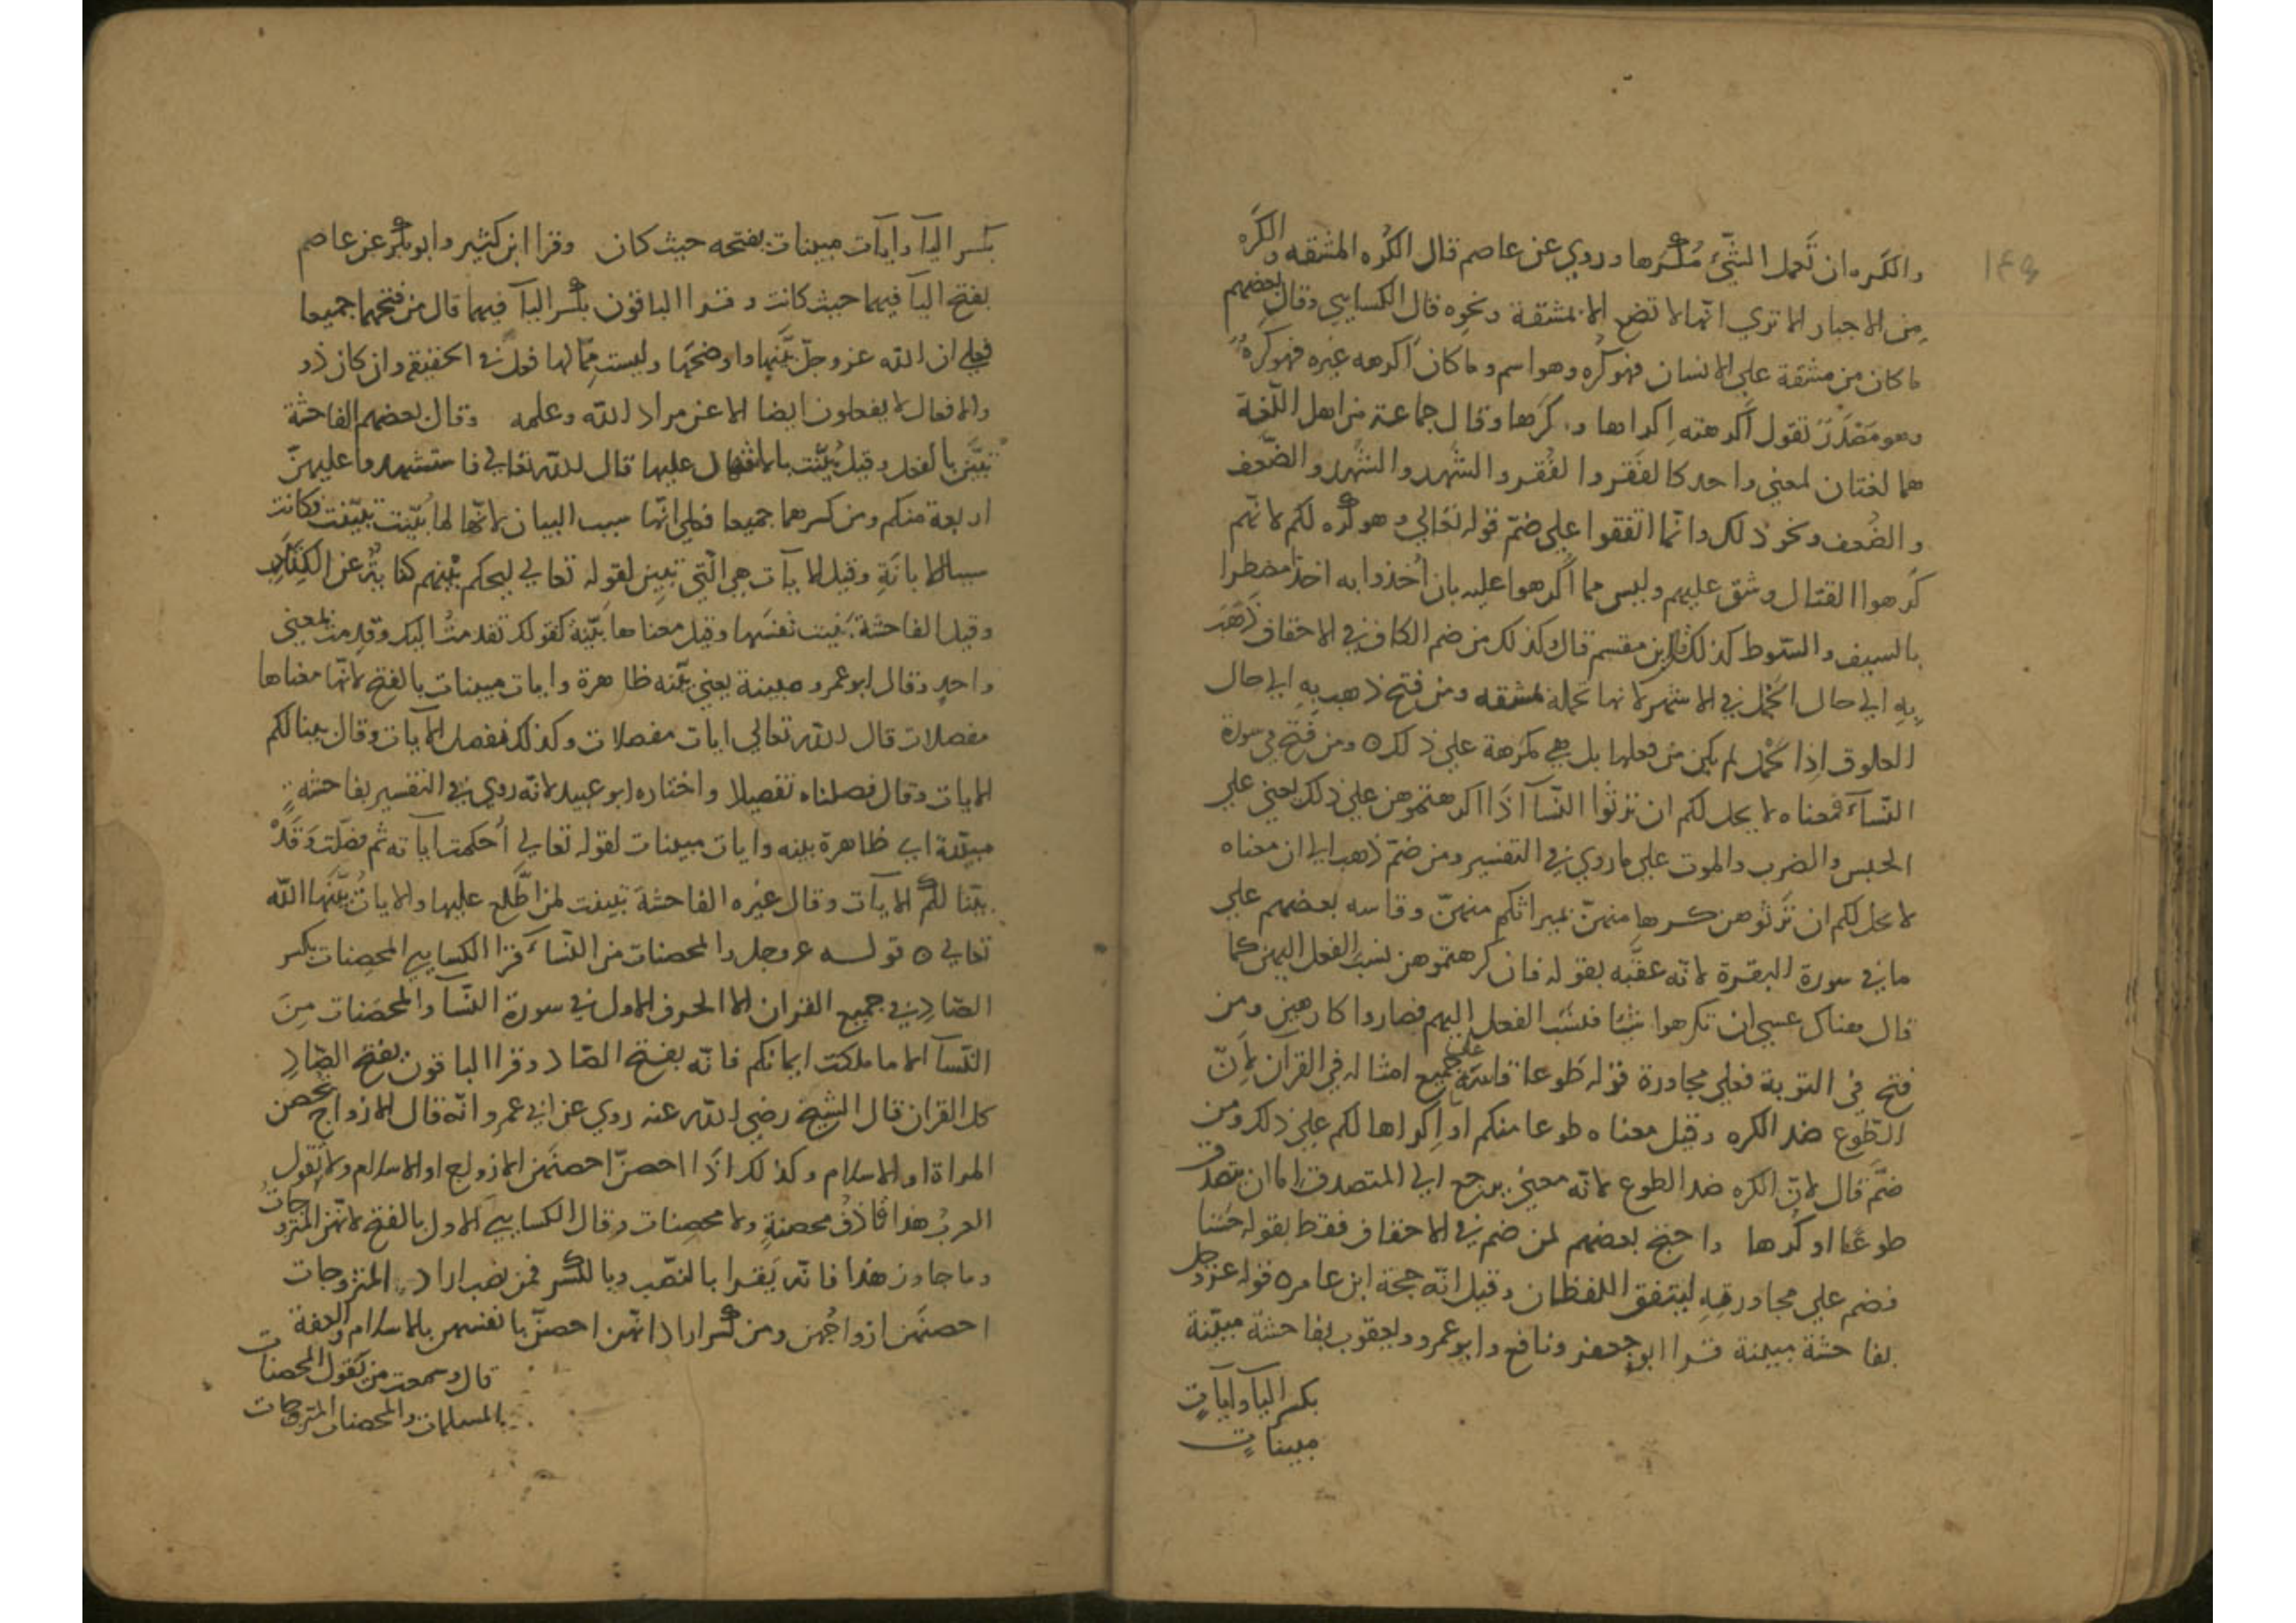 ١٤٥
والكَره ان تَحمل الشّئ مُكْرَها وروي عن عاصم قال الكُره المشقه والكَره
من الاجبار الا تري انّها لا تضع الا بمشقة ونحوه قال الكسايي وقال بعضهم
ما كان من مشقة علي الانسان فهو كُره وهو اسم وما كان اكرهه غيره فهو كَرهٌ
وهو مَصْدَرٌ تقول أكرهته اِكراها و كَرها وقال جماعة من اهل اللّغة
هما لغتان لمعني واحد كالفَقر والفُقر والشَّهد والشُّهد والضَّعف
والضُعف ونحو ذلك وانّما اتفقوا علي ضمّ قوله تعالي وهو كُره لكم لانّهم
كَرهوا القتال وشق عليهم وليس مما أُكرهوا عليه بان أُخذوا به اخذا مضطرا
بالسيف والسّوط كذلك قال ابن مقسم قال وكذلك من ضم الكاف في الاحقاف ذَهَبَ
بِهِ الي حال الحَمل في الاشهر لانها تحمله لمشقه ومن فتح ذهب بِهِ الي حال
العلوق اذا لم يكن من فعلها بل هي مكرَهة علي ذلك ٥ ومن فَتَح في سورة
النّسآءَ فمعناه لا يحل لكم ان ترثوا النّسآ اذا اكرهتموهن علي ذلك يعني علي
الحبس والضرب والموت علي ما روي في التفسير ومن ضمّ ذهب الي ان معناه
لا يحل لكم ان تَرثوهن كرها منهنّ لميراثكم منهنّ وقاسه بعضهم علي
ما في سورة البقرة لانّه عقّبه بقوله فان كرهتموهن نسب الفعل اليهن كما
قال هناك عسي ان تكرهوا شيئا فنسَب الفعل اليهم فصاروا كارهين ومن
فتح في التوبة فعلي مجاورة قوله طوعا قاسته علي جميع امثاله في القرآن لِأنّ
الطّوع ضد الكره وقيل معناه طوعا منكم أو اِكراها لكم علي ذلك ومن
ضمَّ قال لانّ الكره ضد الطوع لانّه معني يرجع الي المتصدق اما ان يتصدق
طوعًا او كُرها واحتج بعضهم لمن ضم في الاحقاف فقط بقوله حُسْنا
فضم علي مجاورته ليتفق اللفظان وقيل انّه حجة ابن عامر ٥ قوله عز وجل
بفاحشة مبينة قرا ابو جعفر ونافع وابو عمرو ويعقوب بفاحشة مبيّنة
بكسر اليآ وآيآتٍ
مبيناتٍ
بكسر اليآ وايآت مبينات بفتحه حيث كان وقرا ابن كثير وابو بكر عن عاصم
بفتح اليآ فيهما حيث كانت وقرا الباقون بكسر اليآ فيهما قال من فتحهما جميعا
فعلي ان الله عز وجلّ بيَّنها واوضحها وليست ممّا لها فعل في الحقيقه وان كان ذو
والافعال لا يفعلون ايضا الا عن مراد الله وعلمه وقال بعضهم الفاحشة
تبيّن بالفعل وقيل بُيّنت عليها قال الله تعالي فاستشهدوا عليهنّ
اربعة منكم ومن كسرهما جميعا فعلي انّها سبب البيان لانّها لما بُيّنت تبيّنت فكانت
وقيل الايآت هي الّتي تبيّن لقوله تعالي ليحكم بَيْنهم
وقيل الفاحشة بَيّنت نفسَها وقيل معناها بيّنة كقولك تقدمتُ اليك وقدمت لمعني
واحدٍ وقال ابو عمرو مبينة يعني بيّنه ظاهرة وايات مبينات بالفتح لانّها معناها
مفصلات قال الله تعالي ايات مفصلات وكذلك نفصل الآيات وقال بينا لكم
الايات وقال فصلناه تفصيلا واختاره ابو عبيد لانّه روي في التفسير بفاحشةٍ
مبيّنة اي ظاهرة بينه وايات مبينات لقوله تعالي أُحكمت آياته ثم فصّلت وَقَدْ
بيّنا لكم الايآت وقال غيره الفاحشة تبينت لمن اطَّلع عليها والاياتُ بيَّنَها الله
تعالي ٥ قولـــه عز وجل والمحصنات من النّسآءَ قرا الكسايي المحصِنات بكسر
الصّادِ في جميع القران الا الحرف الاول في سورة النّسآ والمحصَنات مِنَ
النّسآ الا ما ملكت ايمانكم فانّه بفتح الصّاد وقرا الباقون بفتح الصّادِ
كل القران قال الشيخ رضي الله عنه روي عن ابي عمرو انّه قال الازواج تُحصن
المراة او الاسلام وكذلك اذا احصنّ احصنَهن الازواج او الاسلام ولا تقول
العربُ هذا قاذفُ محصنةٍ ولا محصِنات وقال الكسايي الاول بالفتح لانّهن المتزوجاتُ
وما جاوز هذا فانّه يَقرا بالنصّب وبالكسر فمن نصب اراد المتزوجات
احصنَهن ازواجُهن ومن كسر اراد انّهن احصنّ انفسهن بالاسلام والعفة
قال وسمعت من يَقول المحصنات
المسلمات والمحصنات المتزوجات